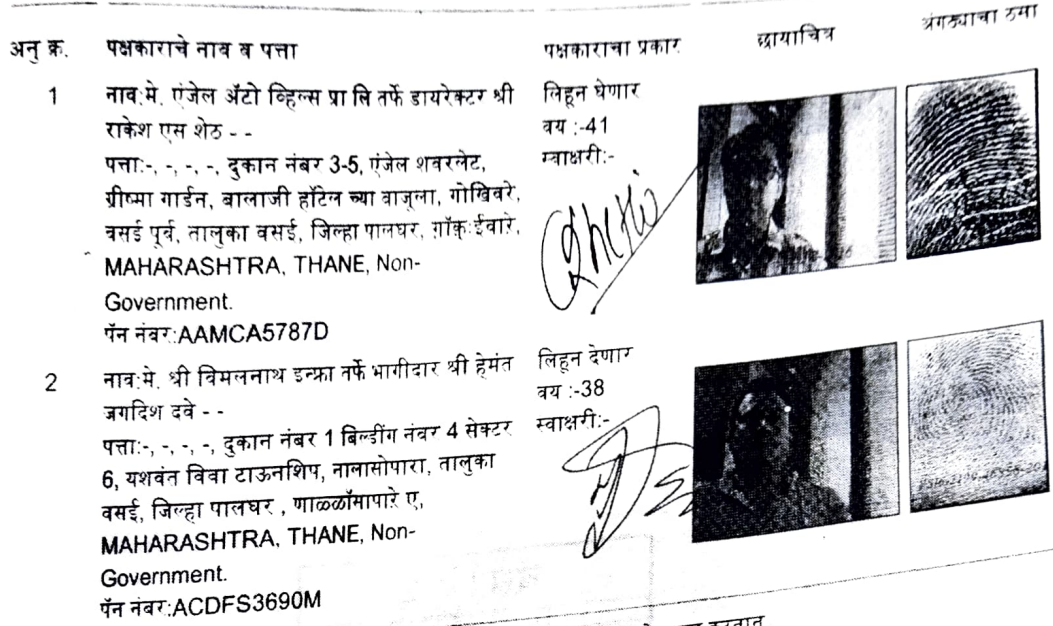 अनु क्र. पक्षकाराचे नाव व पत्ता पक्षकाराचा प्रकार छायाचित्र अंगठ्याचा ठसा
1 नाव:मे. एंजेल ॲटो व्हिल्स प्रा लि तर्फे डायरेक्टर श्री
राकेश एस शेठ - -
पत्ता:-, -, -, -, दुकान नंबर 3-5, एंजेल शवरलेट,
ग्रीष्मा गार्डन, बालाजी हॉटेल च्या बाजूला, गोखिवरे,
वसई पूर्व, तालुका वसई, जिल्हा पालघर, ईवारे,
MAHARASHTRA, THANE, Non-
Government.
पॅन नंबर:AAMCA5787D
लिहून घेणार
वय :-41
स्वाक्षरी:-
2 नाव:मे. श्री विमलनाथ इन्फ्रा तर्फे भागीदार श्री हेमंत
जगदिश दवे - -
पत्ता:-, -, -, -, दुकान नंबर 1 बिल्डींग नंबर 4 सेक्टर
6, यशवंत विवा टाऊनशिप, नालासोपारा, तालुका
वसई, जिल्हा पालघर , ए,
MAHARASHTRA, THANE, Non-
Government.
पॅन नंबर:ACDFS3690M
लिहून देणार
वय :-38
स्वाक्षरी:-